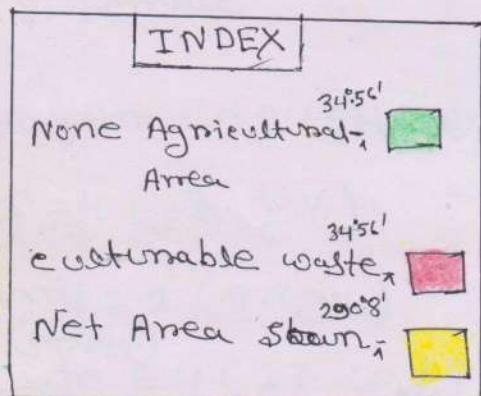 INDEX
34°56'
None Agricultural-
Area
34°56'
culturable waste
290°8'
Net Area Sown-